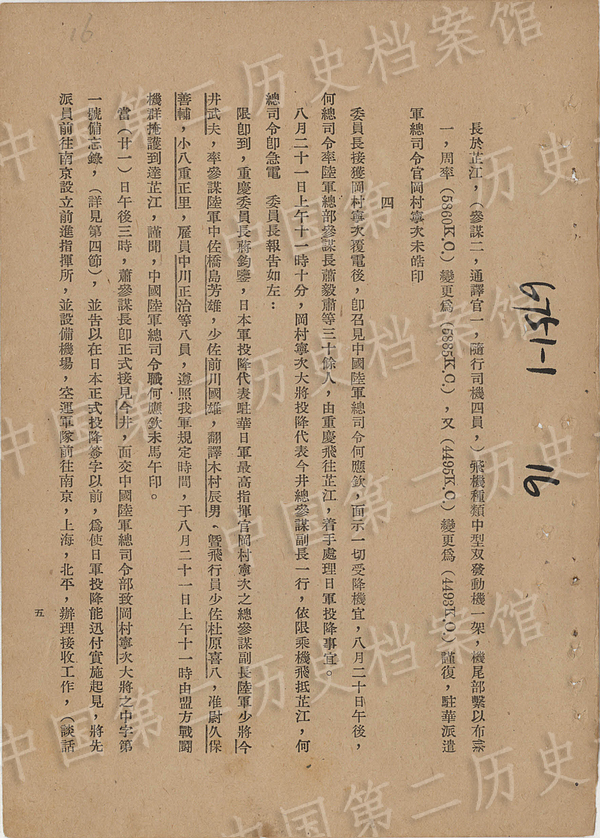 長於芷江，（參謀二，通譯官一，隨行司機四員，）飛機種類中型双發動機一架，機尾部繫以布
一，周率（5860K.C.）變更爲（5885K.C.），又（4495K.C.）變更爲（4493K.C.）謹復，駐華派遣
軍總司令官岡村寧次未皓印
四
委員長接獲岡村寧次覆電後，卽召見中國陸軍總司令何應欽，面示一切受降機宜，八月二十日午後，
何總司令率陸軍總部參謀長蕭毅肅等三十餘人，由重慶飛往芷江，着手處理日軍投降事宜。
八月二十一日上午十一時十分，岡村寧次大將投降代表今井總參謀副長一行，依限乘機飛抵芷江，何
總司令卽急電　委員長報告如左：
限卽到，重慶委員長蔣鈞鑒，日本軍投降代表駐華日軍最高指揮官岡村寧次之總參謀副長陸軍少將今
井武夫，率參謀陸軍中佐橋島芳雄，少佐前川國雄，翻譯木村辰男、暨飛行員少佐杜原喜八，准尉久保
善輔，小八重正里，雇員中川正治等八員，遵照我軍規定時間，于八月二十一日上午十一時由盟方戰鬪
機群掩護到達芷江，謹聞，中國陸軍總司令職何應欽未馬午印。
當（廿一）日午後三時，蕭參謀長卽正式接見今井，面交中國陸軍總司令部致岡村寧次大將之中字第
一號備忘錄，（詳見第四節），並吿以在日本正式投降簽字以前，爲使日軍投降能迅付實施起見，將先
派員前往南京設立前進指揮所，並設備機場，空運軍隊前往南京，上海，北平，辦理接收工作，（談話
五
6751-1
16
16
中国第二历史档案馆
中国第二历史档案馆
中国第二历史档案馆
中国第二历史档案馆
中国第二历史